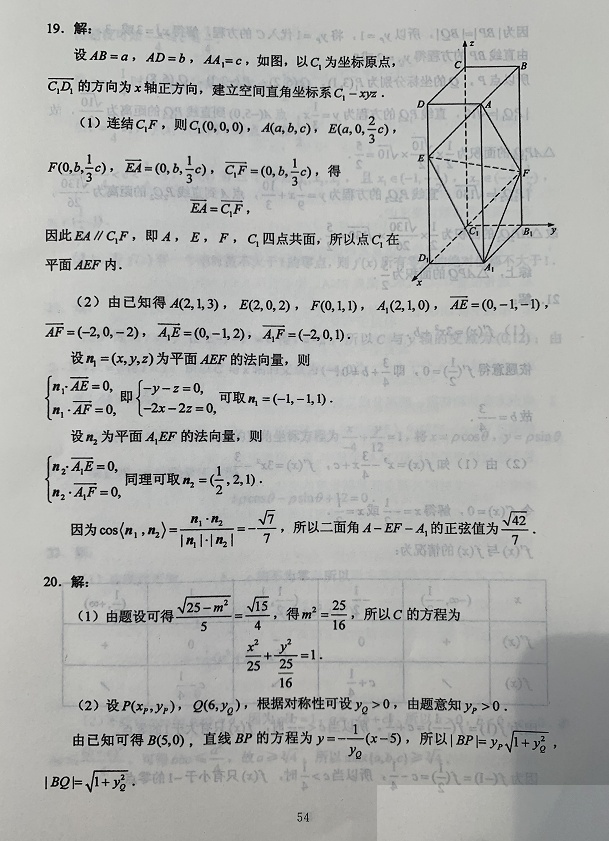 19. 解：
设 AB = a ， AD = b ， AA₁= c ，如图，以 C₁ 为坐标原点，
$\overrightarrow{C_1D_1}$ 的方向为 x 轴正方向，建立空间直角坐标系 C₁ – xyz .
（1）连结 C₁F ，则 C₁(0,0,0) ， A(a,b,c) ， E(a,0,$\frac{2}{3}$c) ，
F(0,b,$\frac{1}{3}$c) ， $\overrightarrow{EA}$ = (0,b,$\frac{1}{3}$c) ， $\overrightarrow{C_1F}$ = (0,b,$\frac{1}{3}$c) ，得
$\overrightarrow{EA}$ = $\overrightarrow{C_1F}$ ，
因此 EA // C₁F ，即 A ， E ， F ， C₁ 四点共面，所以点 C₁ 在
平面 AEF 内．
z
C
B
D
A
E
F
C₁
B₁
y
D₁
A₁
x
（2）由已知得 A(2,1,3) ， E(2,0,2) ， F(0,1,1) ， A₁(2,1,0) ， $\overrightarrow{AE}$ = (0,–1,–1) ，
$\overrightarrow{AF}$ = (–2,0,–2) ， $\overrightarrow{A_1E}$ = (0,–1,2) ， $\overrightarrow{A_1F}$ = (–2,0,1) .
设 n₁ = (x,y,z) 为平面 AEF 的法向量，则
$\begin{cases} n_1\cdot\overrightarrow{AE}=0, \\ n_1\cdot\overrightarrow{AF}=0, \end{cases}$ 即 $\begin{cases} -y-z=0, \\ -2x-2z=0, \end{cases}$ 可取 n₁ = (–1,–1,1) .
设 n₂ 为平面 A₁EF 的法向量，则
$\begin{cases} n_2\cdot\overrightarrow{A_1E}=0, \\ n_2\cdot\overrightarrow{A_1F}=0, \end{cases}$ 同理可取 n₂ = ($\frac{1}{2}$,2,1) .
因为 cos⟨n₁ , n₂⟩ = $\frac{n_1\cdot n_2}{|n_1|\cdot|n_2|}$ = –$\frac{\sqrt{7}}{7}$ ，所以二面角 A – EF – A₁ 的正弦值为 $\frac{\sqrt{42}}{7}$ .
20. 解：
（1）由题设可得 $\frac{\sqrt{25-m^2}}{5}$ = $\frac{\sqrt{15}}{4}$ ，得 m² = $\frac{25}{16}$ ，所以 C 的方程为
$\frac{x^2}{25}+\frac{y^2}{\frac{25}{16}}=1$ .
（2）设 P(x_P, y_P) ， Q(6, y_Q) ，根据对称性可设 y_Q > 0 ，由题意知 y_P > 0 .
由已知可得 B(5,0) ，直线 BP 的方程为 y = –$\frac{1}{y_Q}$(x – 5) ，所以 | BP | = y_P$\sqrt{1+y_Q^2}$ ，
| BQ | = $\sqrt{1+y_Q^2}$ .
54